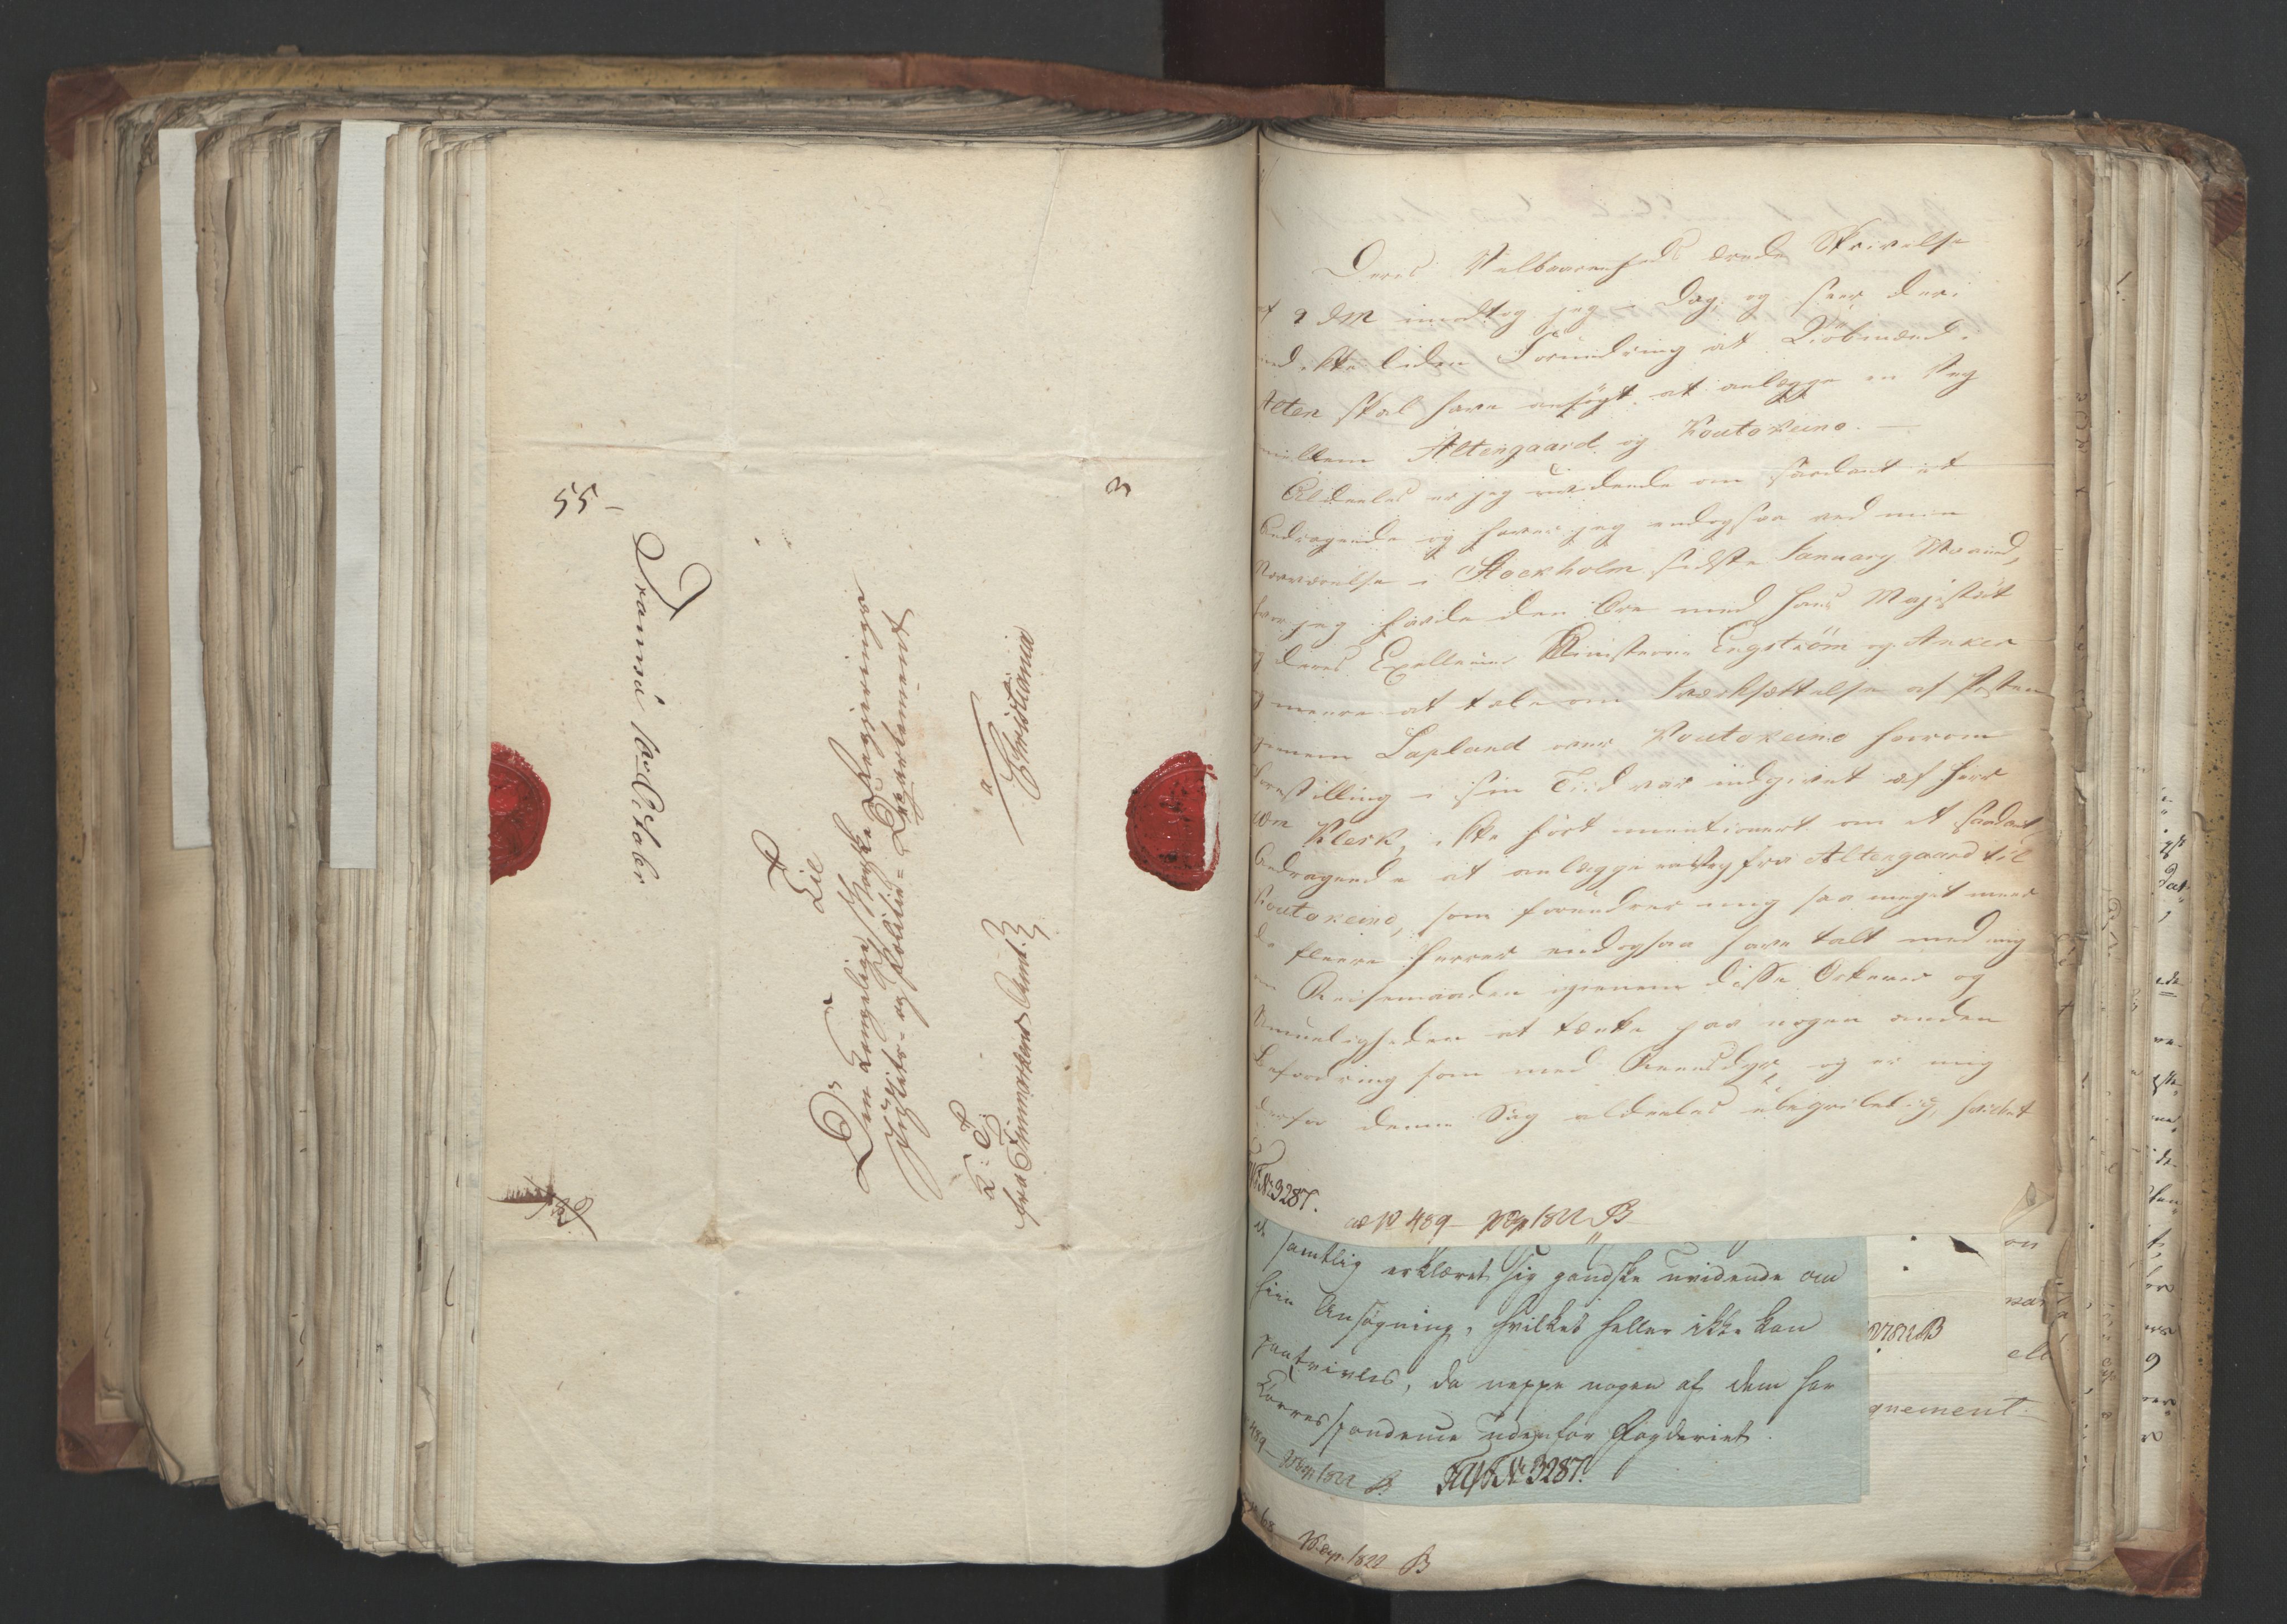 55 –
3
Tromsö 10de Octobr
Til
Den Kongelige Norske Regjerings
Justits- og Politie-Departement
a
Christiania
K: T
fra Finmarkens Amt.
Deres Velbaarenheds ærede Skrivelse
af 2 DM modtog jeg i Dag, og seer deri
med ikke liden Forundring at Kiöbmænd i
Alten skal have ansögt at anlægge en Vey
mellem Altengaard og Koutokeino. –
Aldeeles er jeg uvidende om saadant et
Andragende og haver jeg endogsaa ved min
Nærværelse i Stockholm sidste January Maaned,
hvor jeg havde den Ære med hans Majestæt
og deres Exellence Ministerne Engström og Anker
og meere at tale om Iværksættelse af Posten
gjenem Lapland over Koutokeino hvorom
Forestilling i sin Tiid var indgivet af Herr
Klerk, ikke hört mentionert om et saadant
Andragende at anlægge en Vey fra Altengaard til
Koutokeino, som forundrer mig saa meget meer
da fleere Herrer endogsaa have talt med mig
om Reisemaaden igienem disse Örkener og
Umueligheden at tænke paa nogen anden
Befordring som med Reensdyr, og er mig
denne Sag aldeeles ubegribelig, hvilket
No 3287.
ad No 489 – 1822 B
samtlig erklæret sig gandske uvidende om
hiin Ansøgning, hvilket heller ikke kan
paatvivles, da neppe nogen af dem har
Correspondence udenfor Fogderiet.
489 – 1822 B No 3287.
1822 B
1822 B
gnement